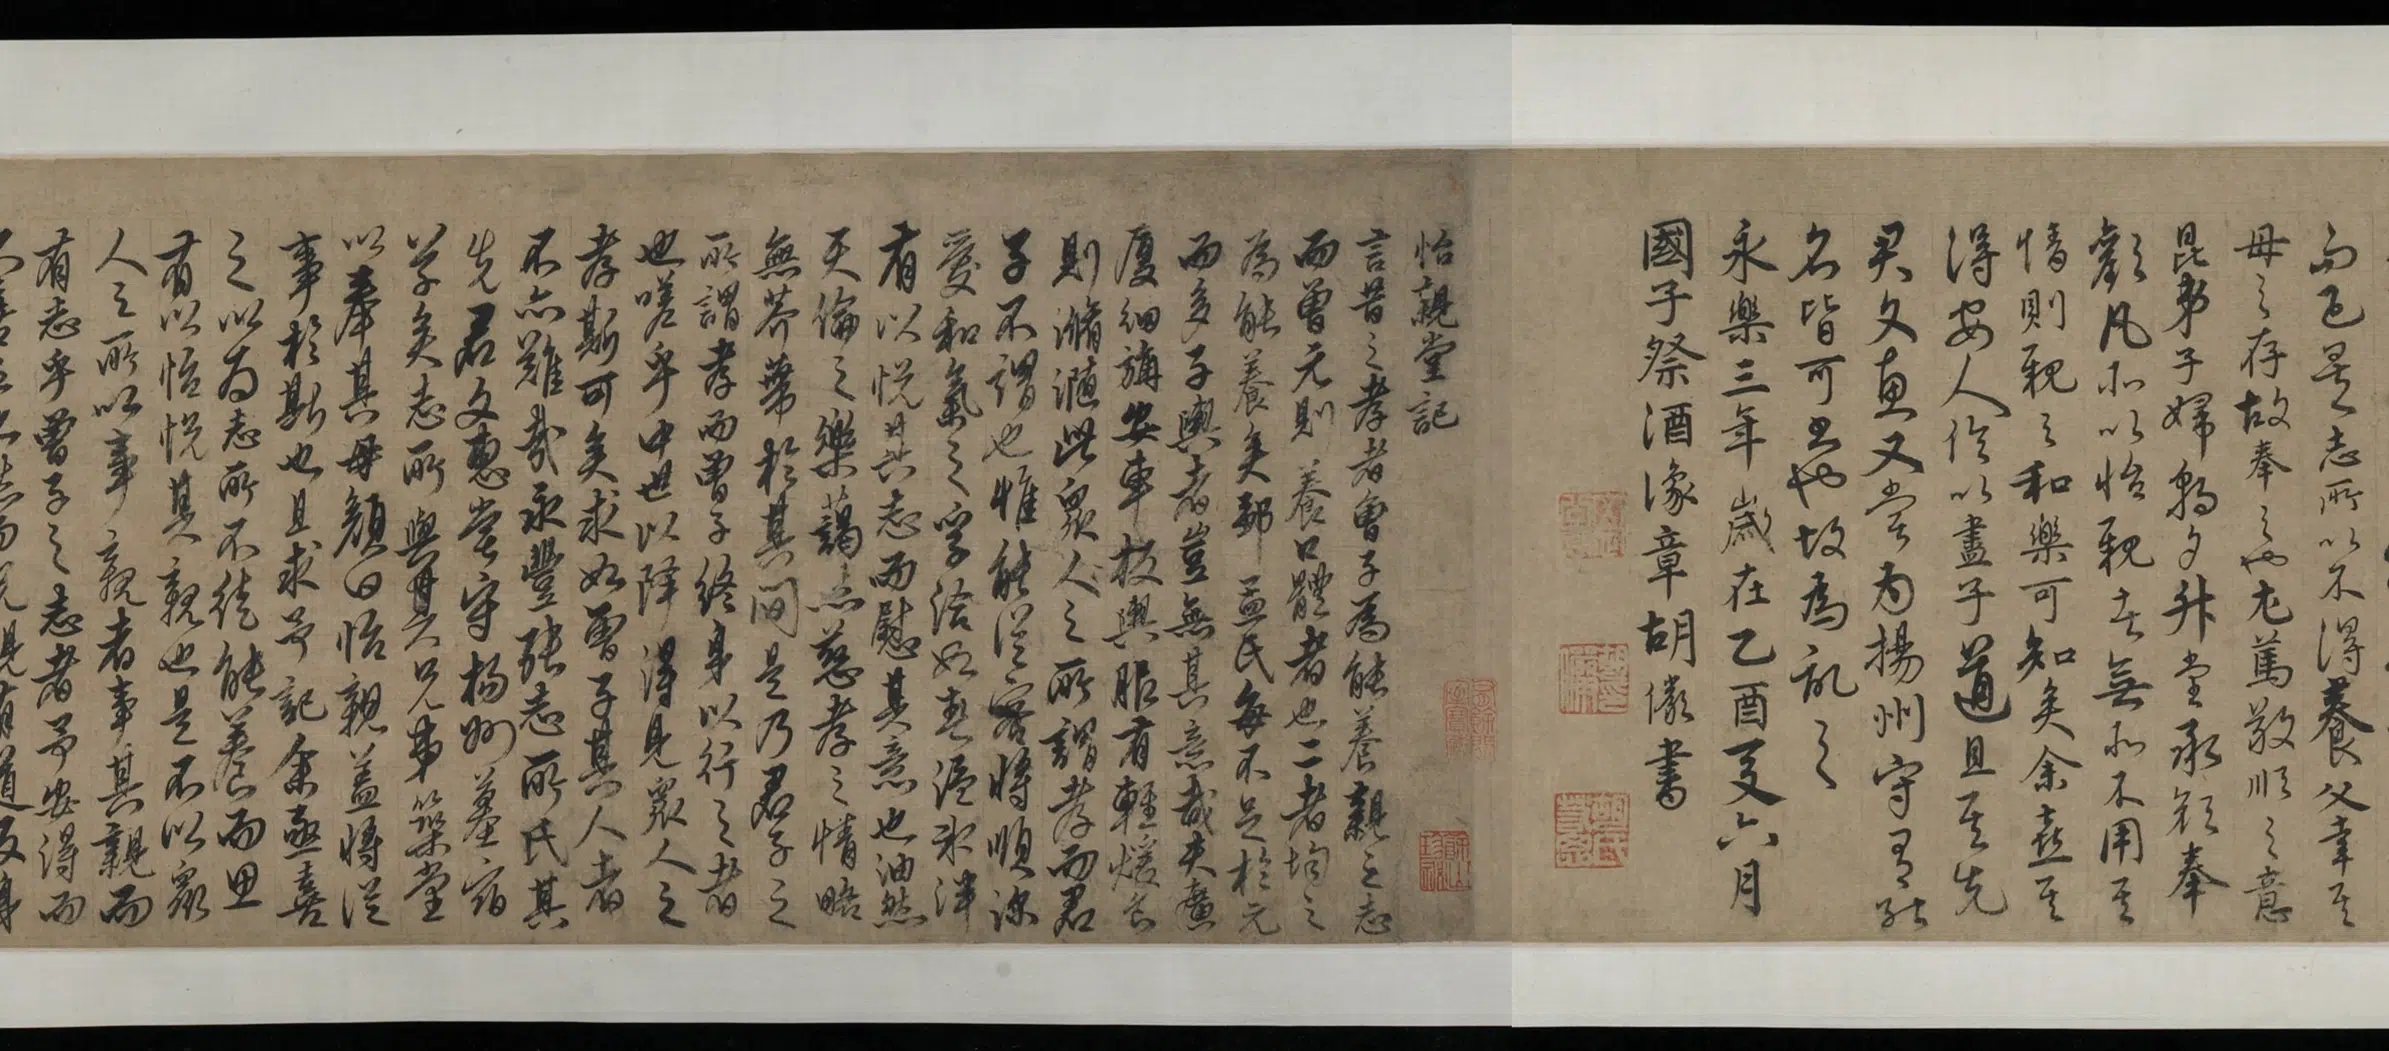 而已是志所以不得養父幸其
母之存故奉之也尤篤敬順之意
昆弟子婦朝夕升堂承顏奉
歡凡所以怡親者無所不用其
情則親之和樂可知矣余喜其
得安人倫以盡子道且其先
君文惠又嘗為揚州守有政
名皆可書也故為記之
永樂三年歲在乙酉夏六月
國子祭酒豫章胡儼書
怡親堂記
言昔之孝者曾子為能養親之志
而曾元則養口體者也二者均之
為能養矣鄒孟氏每不足於元
而多子輿者豈無其意哉夫廣
廈細旃安車板輿服有輕煖食
則滫瀡此眾人之所謂孝而君
子不謂也惟能從容將順深
愛和氣之孚洽如春溫冰泮
有以悅其志而慰其意也油然
天倫之樂藹然慈孝之情略
無芥蔕於其間是乃君子之
所謂孝而曾子終身以行之者
也嗟乎中世以降得見眾人之
孝斯可矣求如曾子其人者
不亦難哉永豐張志所氏其
先君文惠嘗守揚州蚤喪
以孝矣志所與其兄弟築堂
以奉其母顏曰怡親蓋將從
事於斯也且求予記余亟喜
之以為志所不徒能養而思
有以怡悅其親也是不以眾
人之所以事親者事其親而
有志乎曾子之志者予安得而